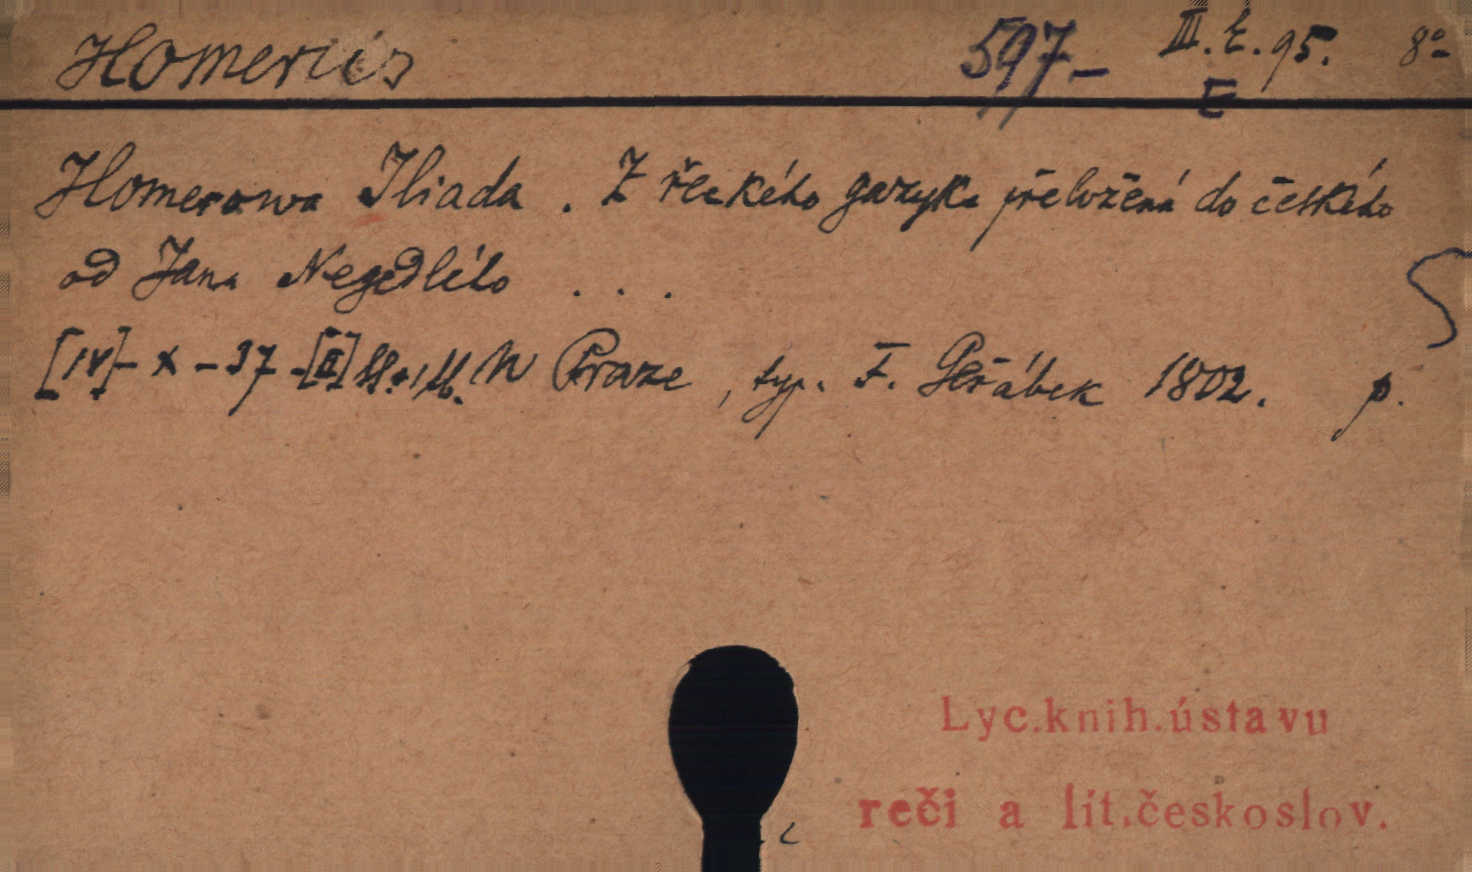 Homerius 597- III. E. 95. 8°
E
Homerowa Iliada. Z řeckého gazyka přeložená do českého
od Jana Negedlého ...
[IV]- X - 37 -[II] W Praze, typ. F. Geřábek 1802. p.
Lyc.knih.ústavu
reči a lit.českoslov.